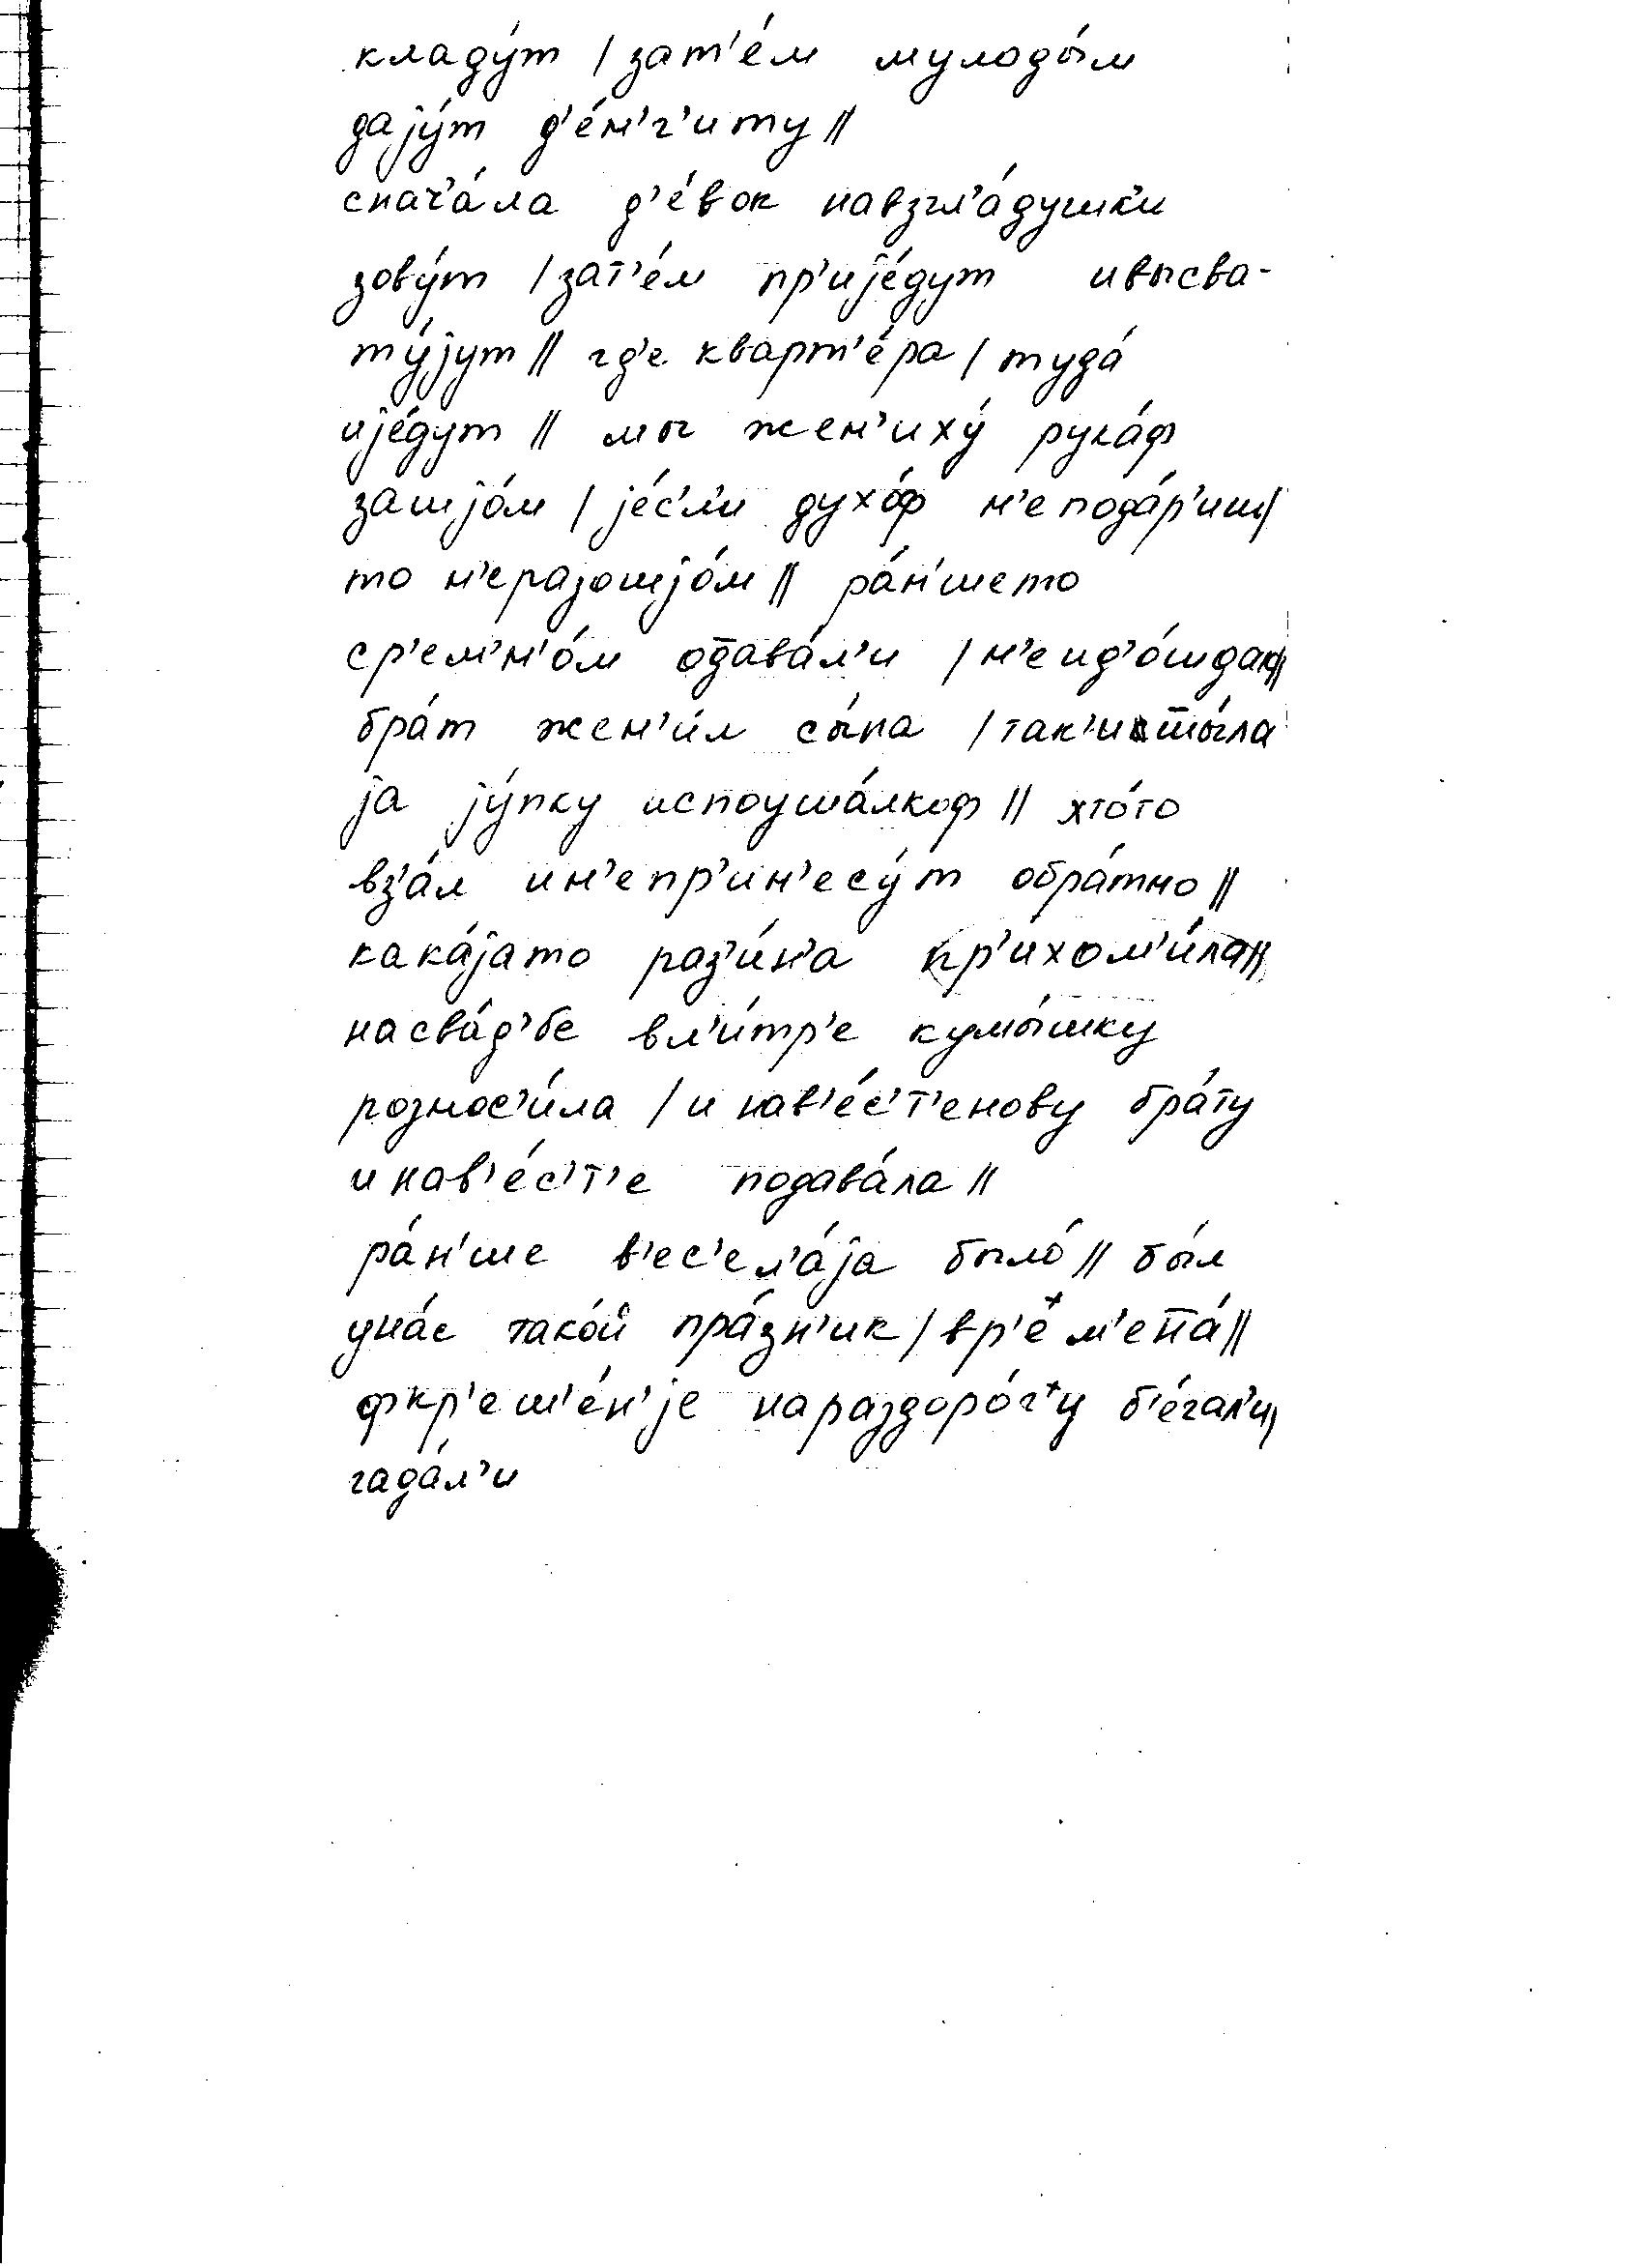 кладу́т / зат'е́м мулоды́м
даjу́т д'е́н'г'иту //
снач'а́ла д'е́вок навзгл'а́душки
зову́т / зат'е́м пр'иjе́дут ивысва-
ту́jут // гд'е кварт'е́ра / туда́
иjе́дут // мы жен'иху́ рука́ф
зашjо́м / jе́с'л'и духо́ф н'еподар'иш /
то н'еразошjо́м // ра́н'шето
ср'ем'н'о́м одава́л'и / н'еид'о́ш
бра́т жен'и́л сы́на / так'и
jа jу́пку испоуша́лкоф // хто́то
вз'а́л ин'епр'ин'есу́т обра́тно //
кака́jато раз'и́н'а пр'ихом'и́ла //
насва́д'бе вл'и́тр'е кумы́шку
рознос'и́ла / и нав'е́с'т'енову бра́ту
инав'е́с'т'е подава́ла //
ра́н'ше в'ес'ел'а́jа было́ // бы́л
уна́с тако́й пра́зн'ик / вр'е́м'ена́ //
фкр'еш'е́н'jе нараздоро́г'у б'е́гал'и,
гада́л'и